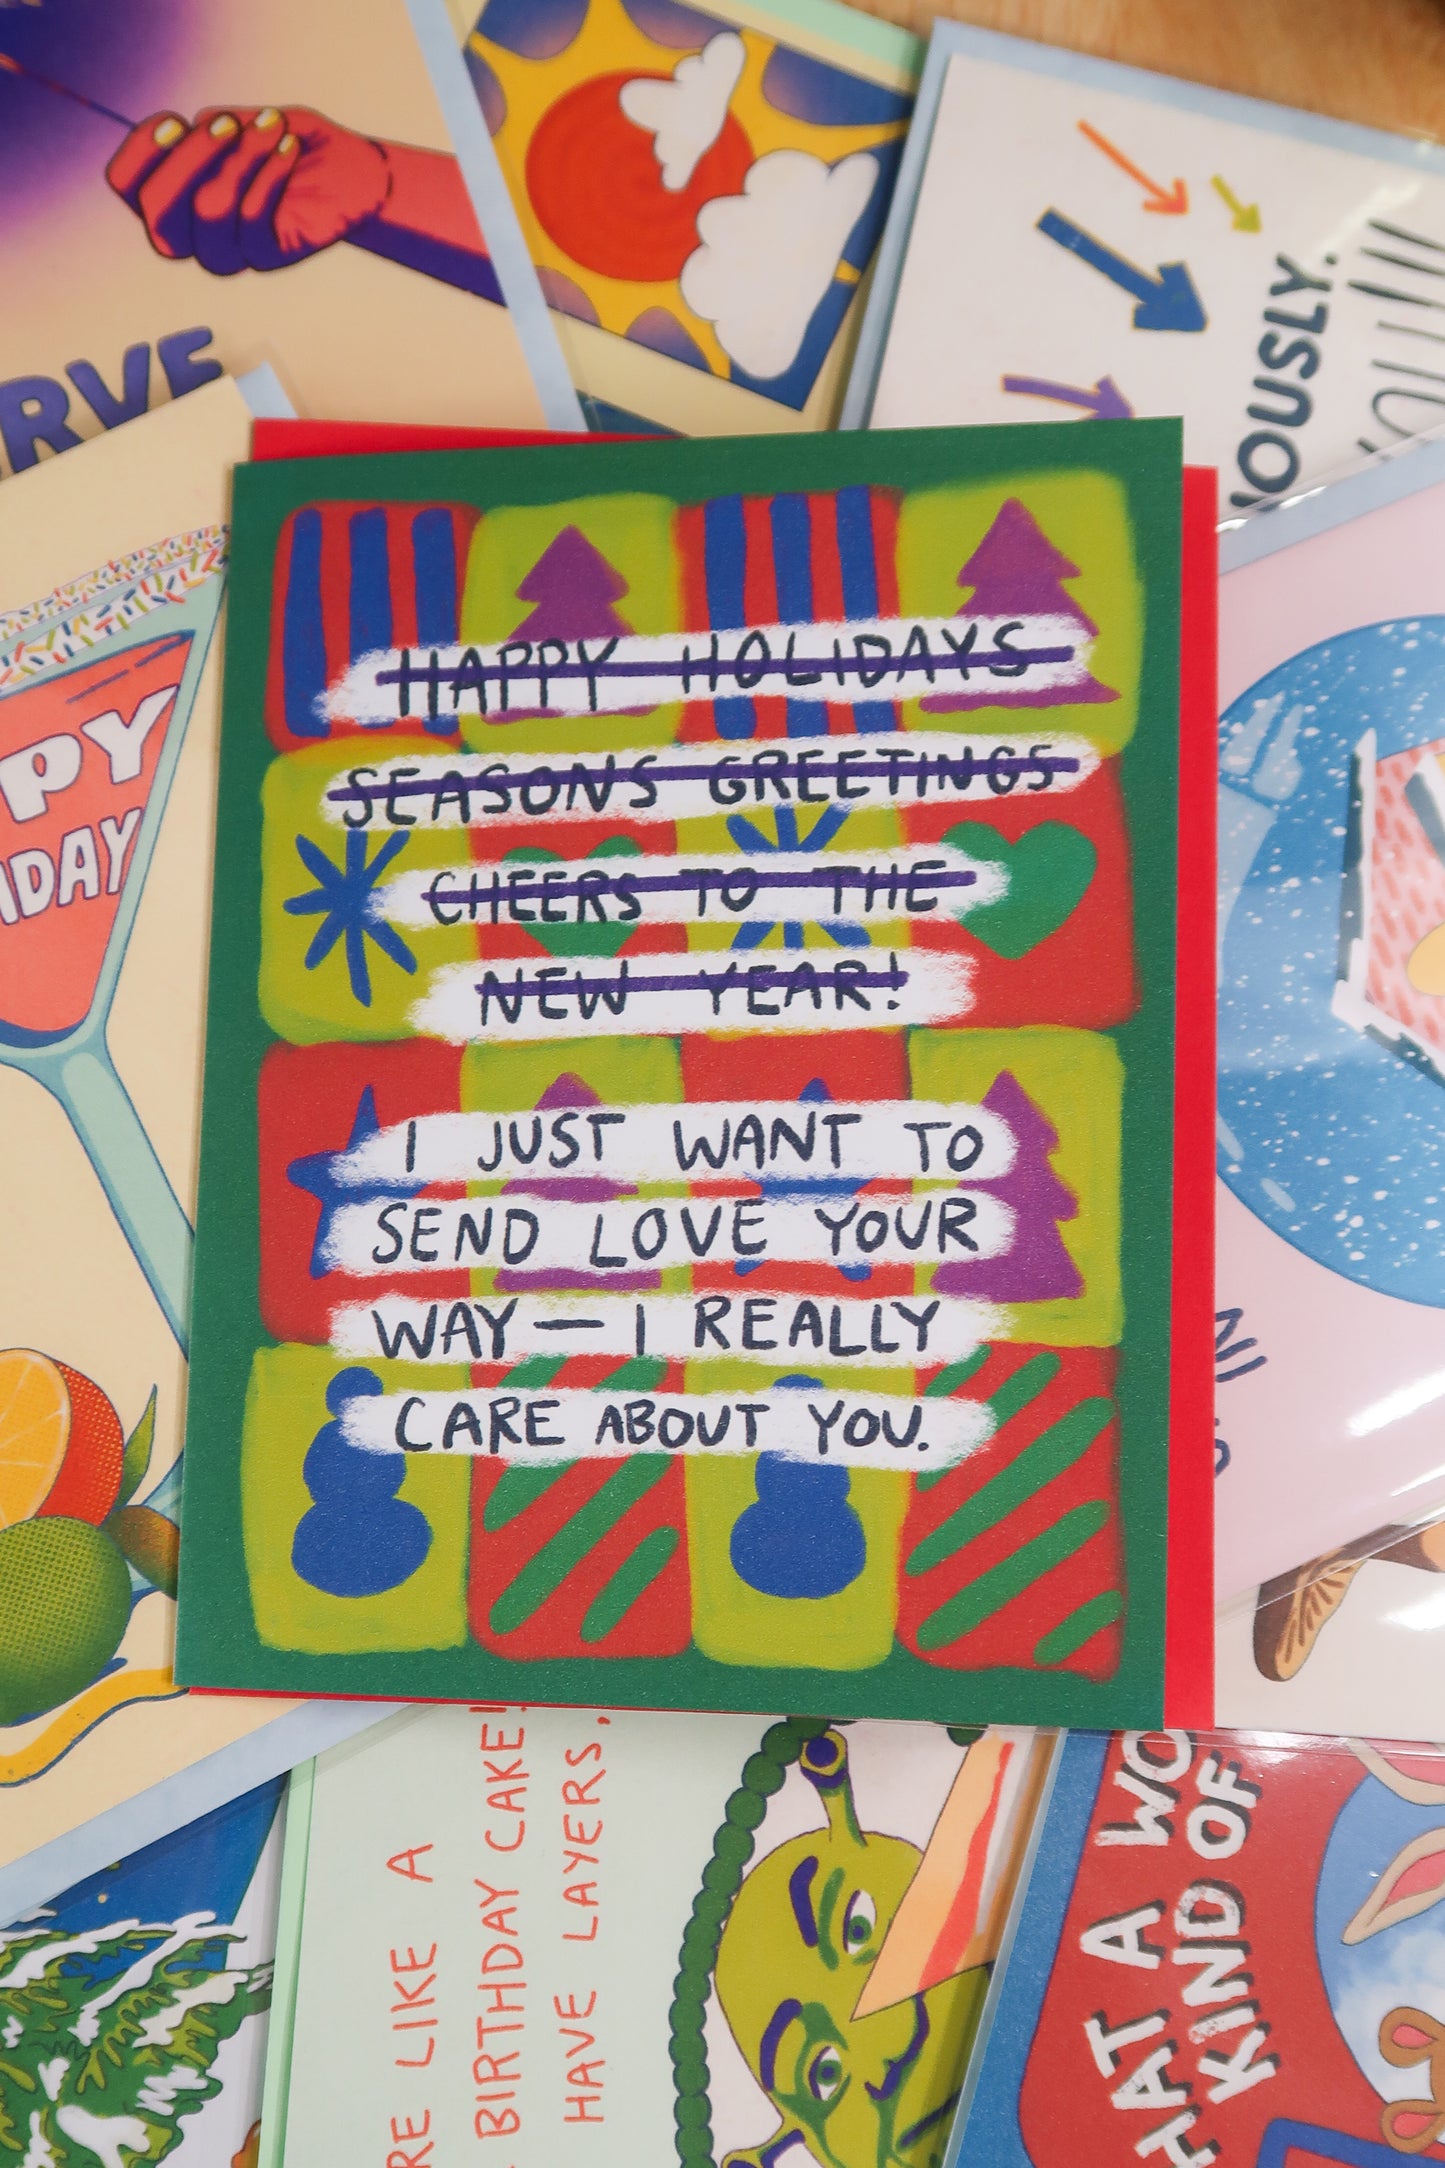 HAPPY HOLIDAYS
SEASONS GREETINGS
CHEERS TO THE
NEW YEAR!
I JUST WANT TO
SEND LOVE YOUR
WAY — I REALLY
CARE ABOUT YOU.
LIKE A
BIRTHDAY CAKE!
HAVE LAYERS,
A
KIND OF